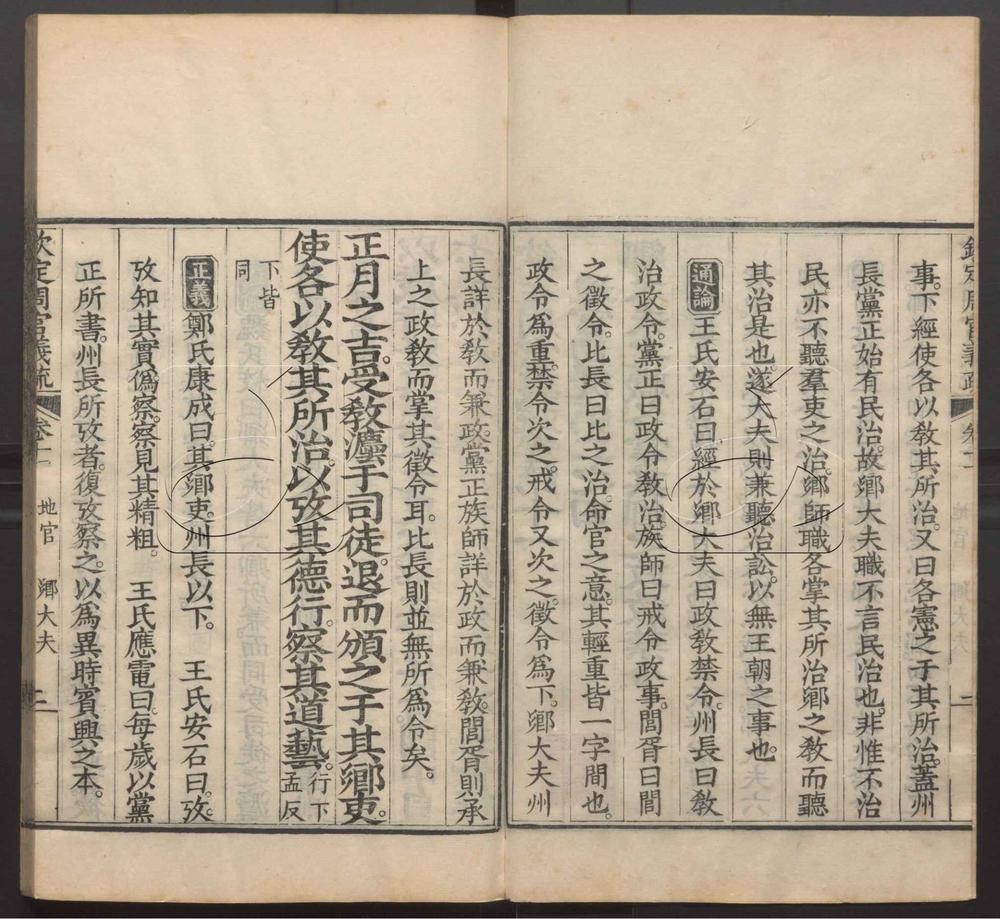 事。下經使各以敎其所治。又曰各憲之于其所治。蓋州
長黨正始有民治。故鄉大夫職不言民治也。非惟不治
民。亦不聽羣吏之治。鄉師職各掌其所治鄉之敎而聽
其治是也。遂大夫則兼聽治訟。以無王朝之事也。
通論 王氏安石曰經於鄉大夫曰政敎禁令。州長曰敎
治政令。黨正曰政令敎治。族師曰戒令政事。閭胥曰閭
之徵令。比長曰比之治。命官之意。其輕重皆一字間也。
政令爲重。禁令次之。戒令又次之。徵令爲下。鄉大夫州
長詳於敎而兼政。黨正族師詳於政而兼敎。閭胥則承
上之政敎而掌其徵令耳。比長則並無所爲令矣。
正月之吉。受敎灋于司徒。退而頒之于其鄉吏。
使各以敎其所治。以攷其德行。察其道藝。行下孟反
下皆同
正義 鄭氏康成曰。其鄉吏。州長以下。 王氏安石曰。攷。
攷知其實僞。察。察見其精粗。 王氏應電曰。每歲以黨
正所書。州長所攷者。復攷察之。以爲異時賓興之本。
欽定周官義疏 卷十一 地官 鄉大夫 二